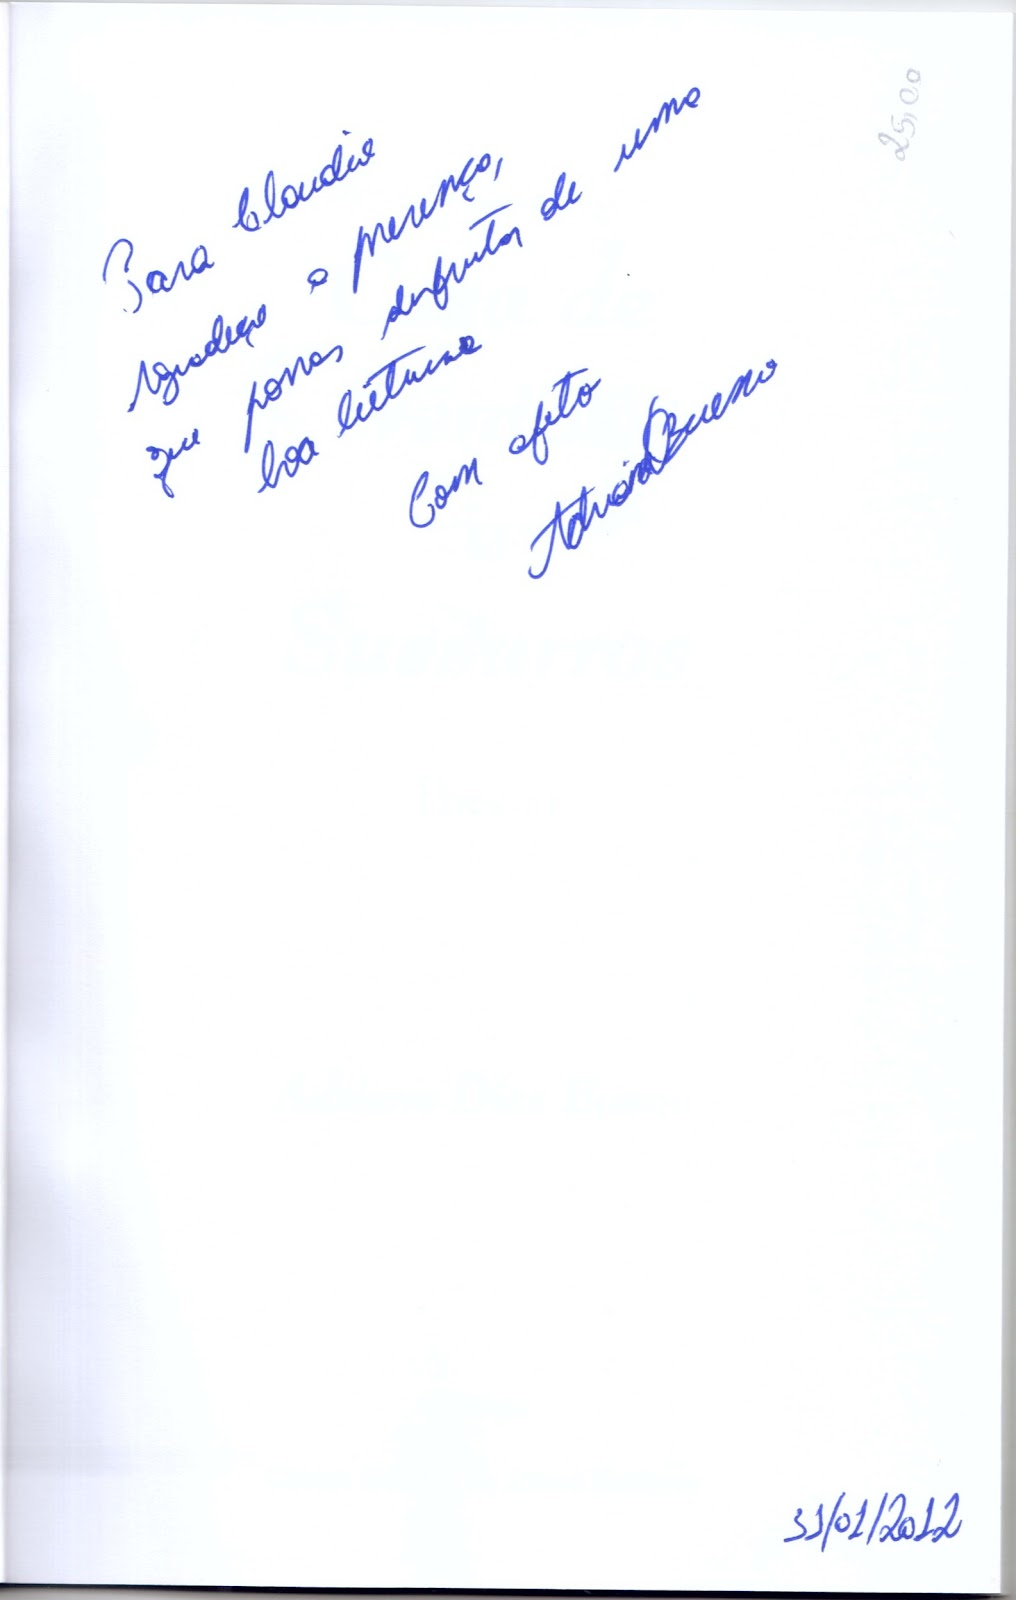 25,00
Para Claudia
Agradeço a presença,
que possas desfrutar de uma
boa leitura
Com afeto
Adriana Bueno
31/01/2012